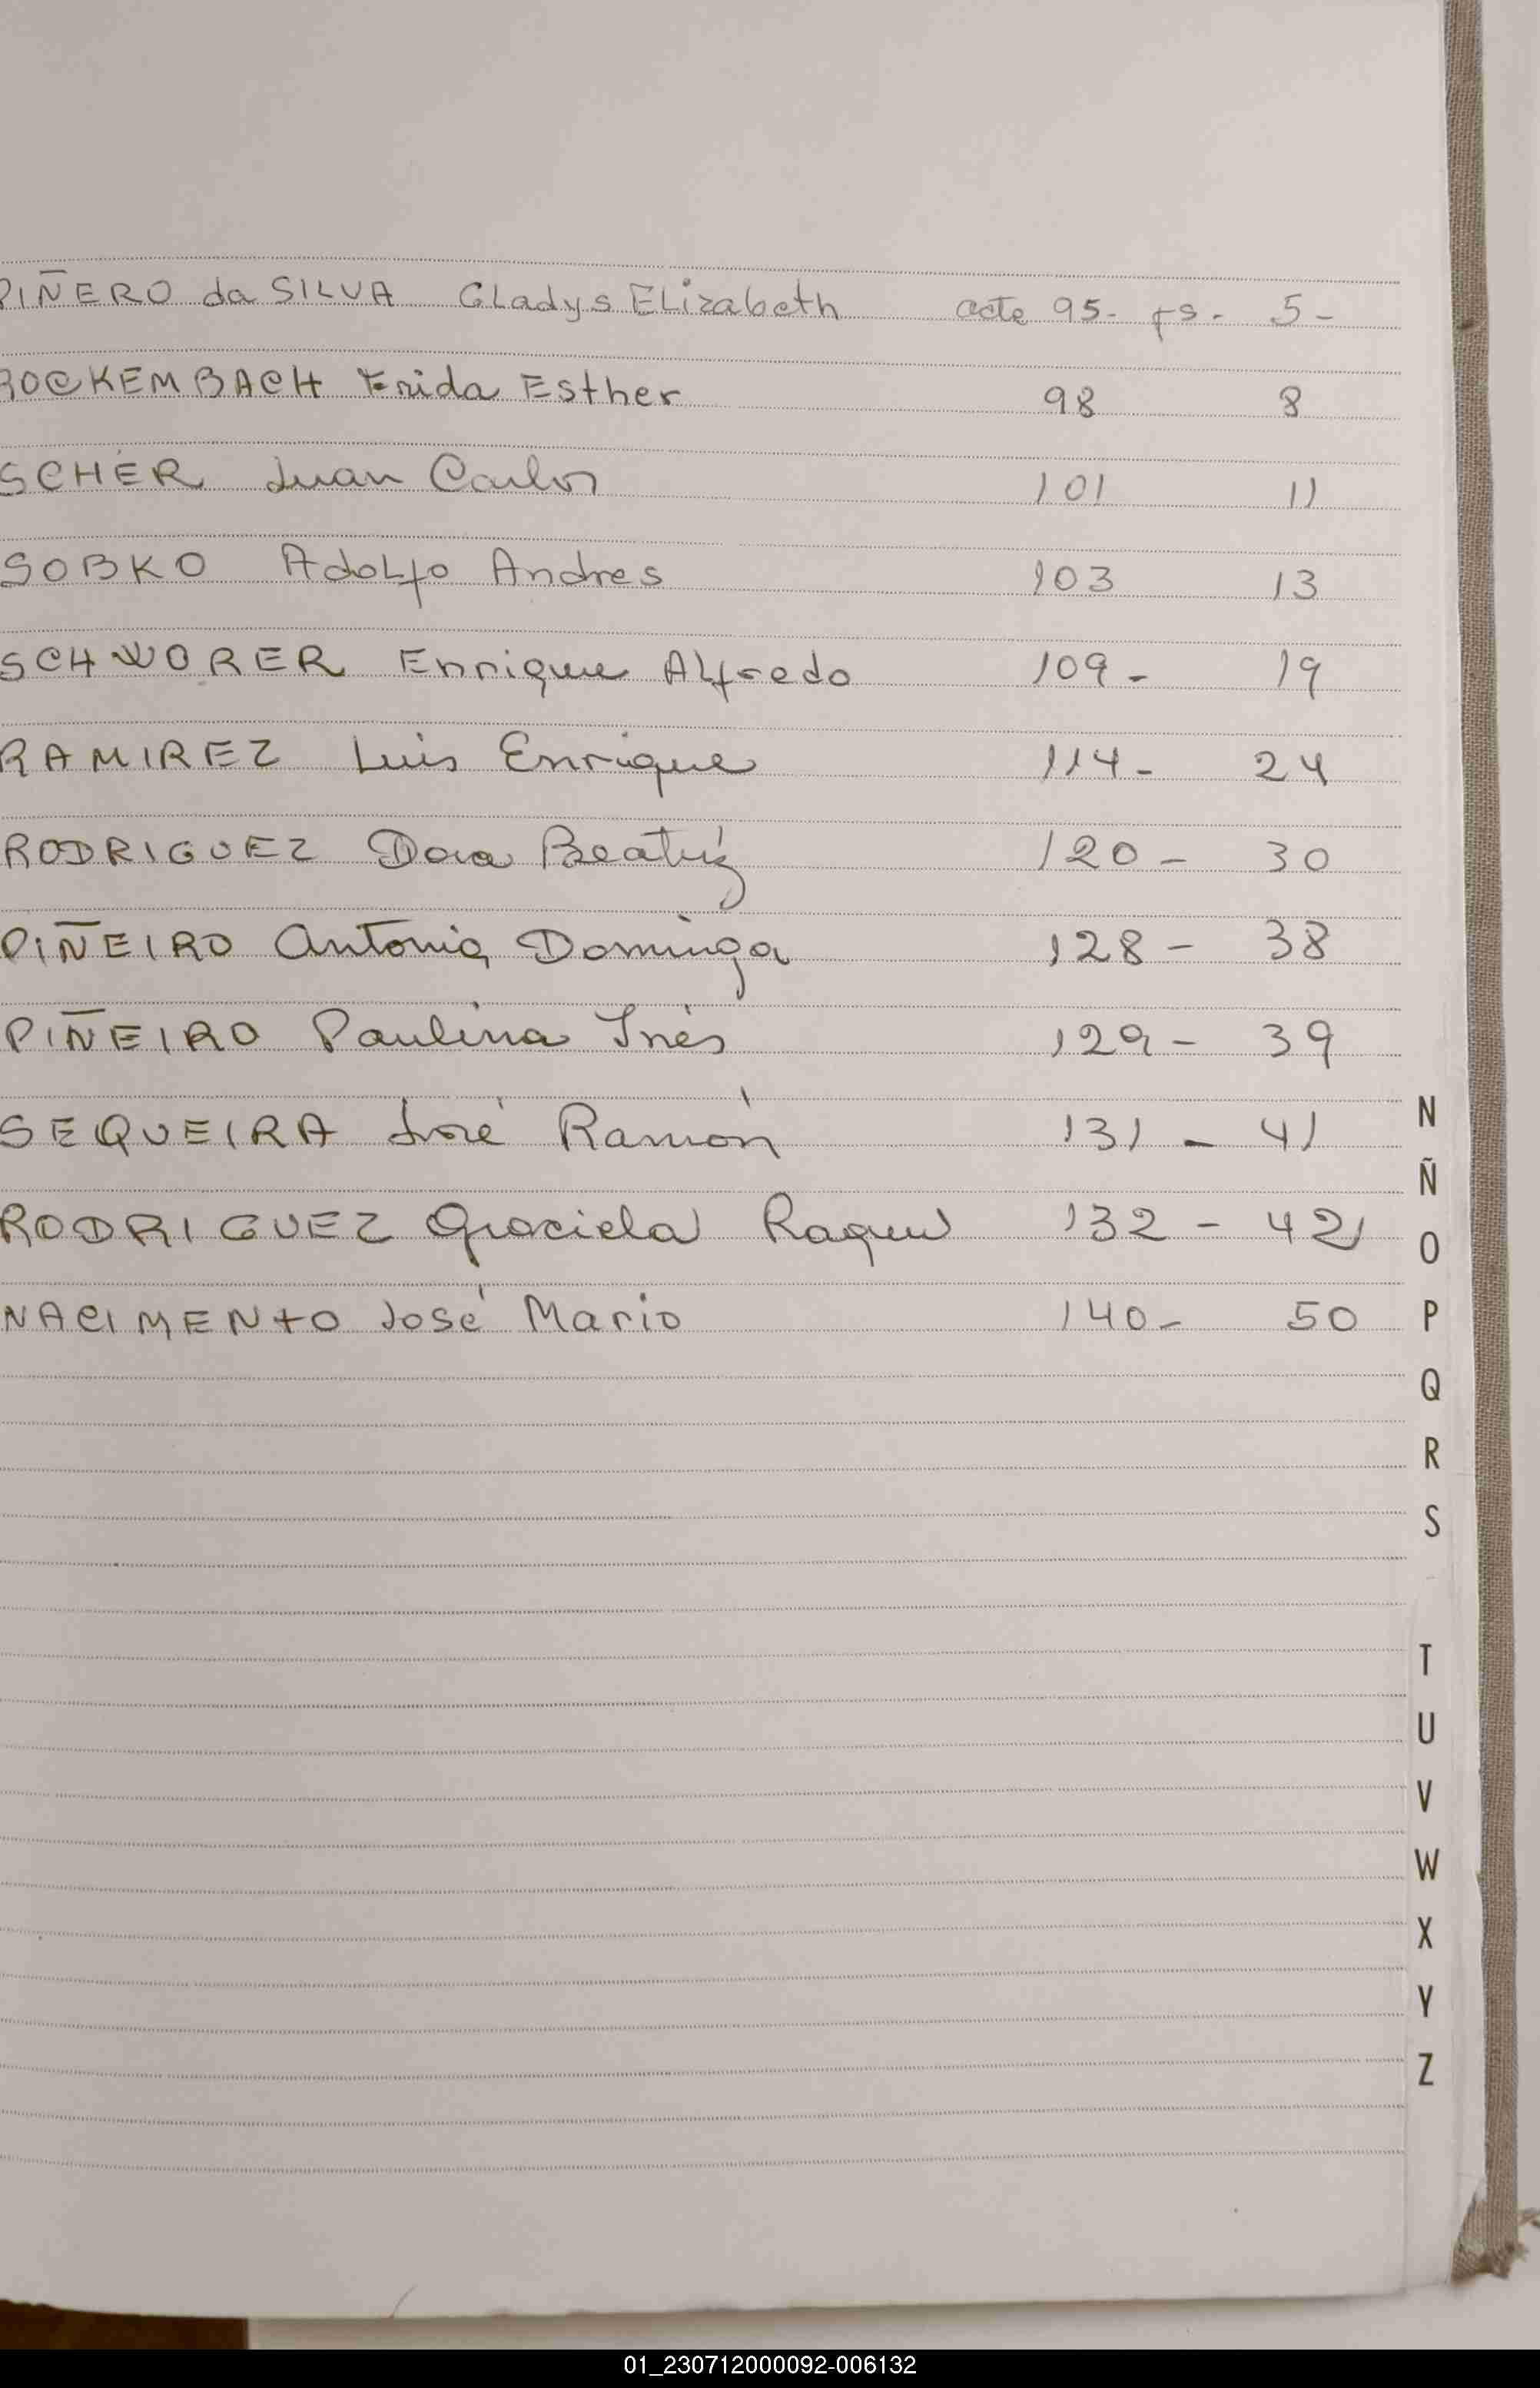 PIÑERO da SILVA Gladys Elizabeth acta 95- fs. 5-
ROCKEMBACH Frida Esther 98 8
SCHER Juan Carlos 101 11
SOBKO Adolfo Andres 103 13
SCHWORER Enrique Alfredo 109- 19
RAMIREZ Luis Enrique 114- 24
RODRIGUEZ Beatríz 120- 30
PIÑEIRO Antonia Dominga 128- 38
PIÑEIRO Paulina Inés 129- 39
SEQUEIRA José Ramón 131- 41
RODRIGUEZ Graciela Raquel 132- 42
NACIMENTO José Mario 140- 50
N
Ñ
O
P
Q
R
S
T
U
V
W
X
Y
Z
01_230712000092-006132